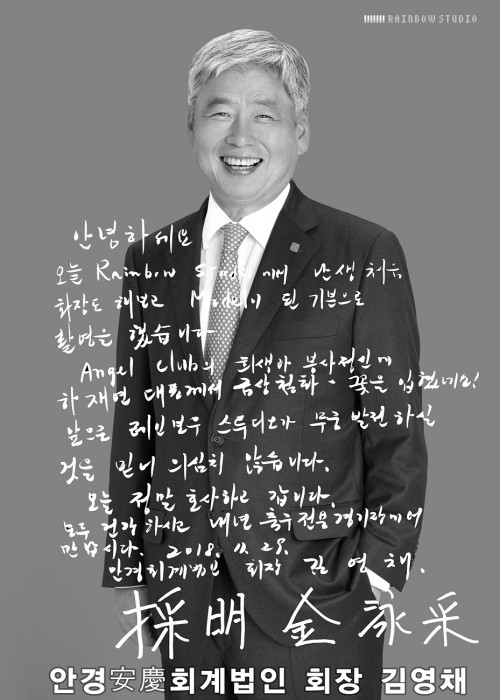 RAINBOW STUDIO
안녕하세요
오늘 Rainbow Studio에서 난생 처음
화장도 해보고 Model이 된 기분으로
촬영을 했습니다
Angel Club의 희생과 봉사정신에
하재연 대표께서 금상첨화 꽃을 입혔네요!
앞으로 레인보우 스튜디오가 무궁 발전하실
것을 믿어 의심치 않습니다.
오늘 정말 호사하고 갑니다.
모두 건강하시고 내년 축구전용경기장에서
만납시다. 2018. 11. 29.
안경회계법인 회장 김영채.
採明 金詠采
안경安慶회계법인 회장 김영채